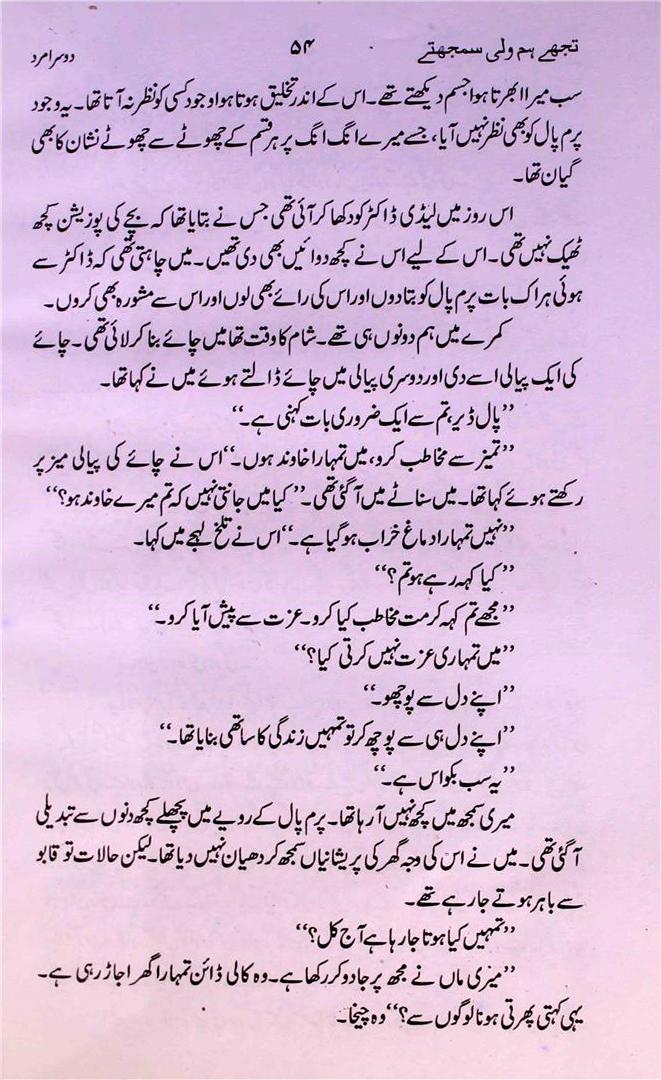 تجھے ہم ولی سمجھتے ۵۴ دوسرا مرد
سب میرا ابھرتا ہوا جسم دیکھتے تھے۔ اس کے اندر تخلیق ہوتا ہوا وجود کسی کو نظر نہ آتا تھا۔ یہ وجود
پرم پال کو بھی نظر نہیں آیا، جسے میرے انگ انگ پر ہر قسم کے چھوٹے سے چھوٹے نشان کا بھی
گیان تھا۔
اس روز میں لیڈی ڈاکٹر کو دکھا کر آئی تھی جس نے بتایا تھا کہ بچے کی پوزیشن کچھ
ٹھیک نہیں تھی۔ اس کے لیے اس نے کچھ دوائیں بھی دی تھیں۔ میں چاہتی تھی کہ ڈاکٹر سے
ہوئی ہر اک بات پرم پال کو بتا دوں اور اس کی رائے بھی لوں اور اس سے مشورہ بھی کروں۔
کمرے میں ہم دونوں ہی تھے۔ شام کا وقت تھا میں چائے بنا کر لائی تھی۔ چائے
کی ایک پیالی اسے دی اور دوسری پیالی میں چائے ڈالتے ہوئے میں نے کہا تھا۔
”پال ڈیر، تم سے ایک ضروری بات کہنی ہے۔“
”تمیز سے مخاطب کرو، میں تمہارا خاوند ہوں۔“ اس نے چائے کی پیالی میز پر
رکھتے ہوئے کہا تھا۔ میں سناٹے میں آ گئی تھی۔ ”کیا میں جانتی نہیں کہ تم میرے خاوند ہو؟“
”نہیں تمہارا دماغ خراب ہو گیا ہے۔“ اس نے تلخ لہجے میں کہا۔
”کیا کہہ رہے ہو تم؟“
”مجھے تم کہہ کر مت مخاطب کیا کرو۔ عزت سے پیش آیا کرو۔“
”میں تمہاری عزت نہیں کرتی کیا؟“
”اپنے دل سے پوچھو۔“
”اپنے دل ہی سے پوچھ کر تو تمہیں زندگی کا ساتھی بنایا تھا۔“
”یہ سب بکواس ہے۔“
میری سمجھ میں کچھ نہیں آ رہا تھا۔ پرم پال کے رویے میں پچھلے کچھ دنوں سے تبدیلی
آ گئی تھی۔ میں نے اس کی وجہ گھر کی پریشانیاں سمجھ کر دھیان نہیں دیا تھا۔ لیکن حالات تو قابو
سے باہر ہوتے جا رہے تھے۔
”تمہیں کیا ہوتا جا رہا ہے آج کل؟“
”میری ماں نے مجھ پر جادو کر رکھا ہے۔ وہ کالی ڈائن تمہارا گھر اجاڑ رہی ہے۔
یہی کہتی پھرتی ہو نا لوگوں سے؟“ وہ چیخا۔